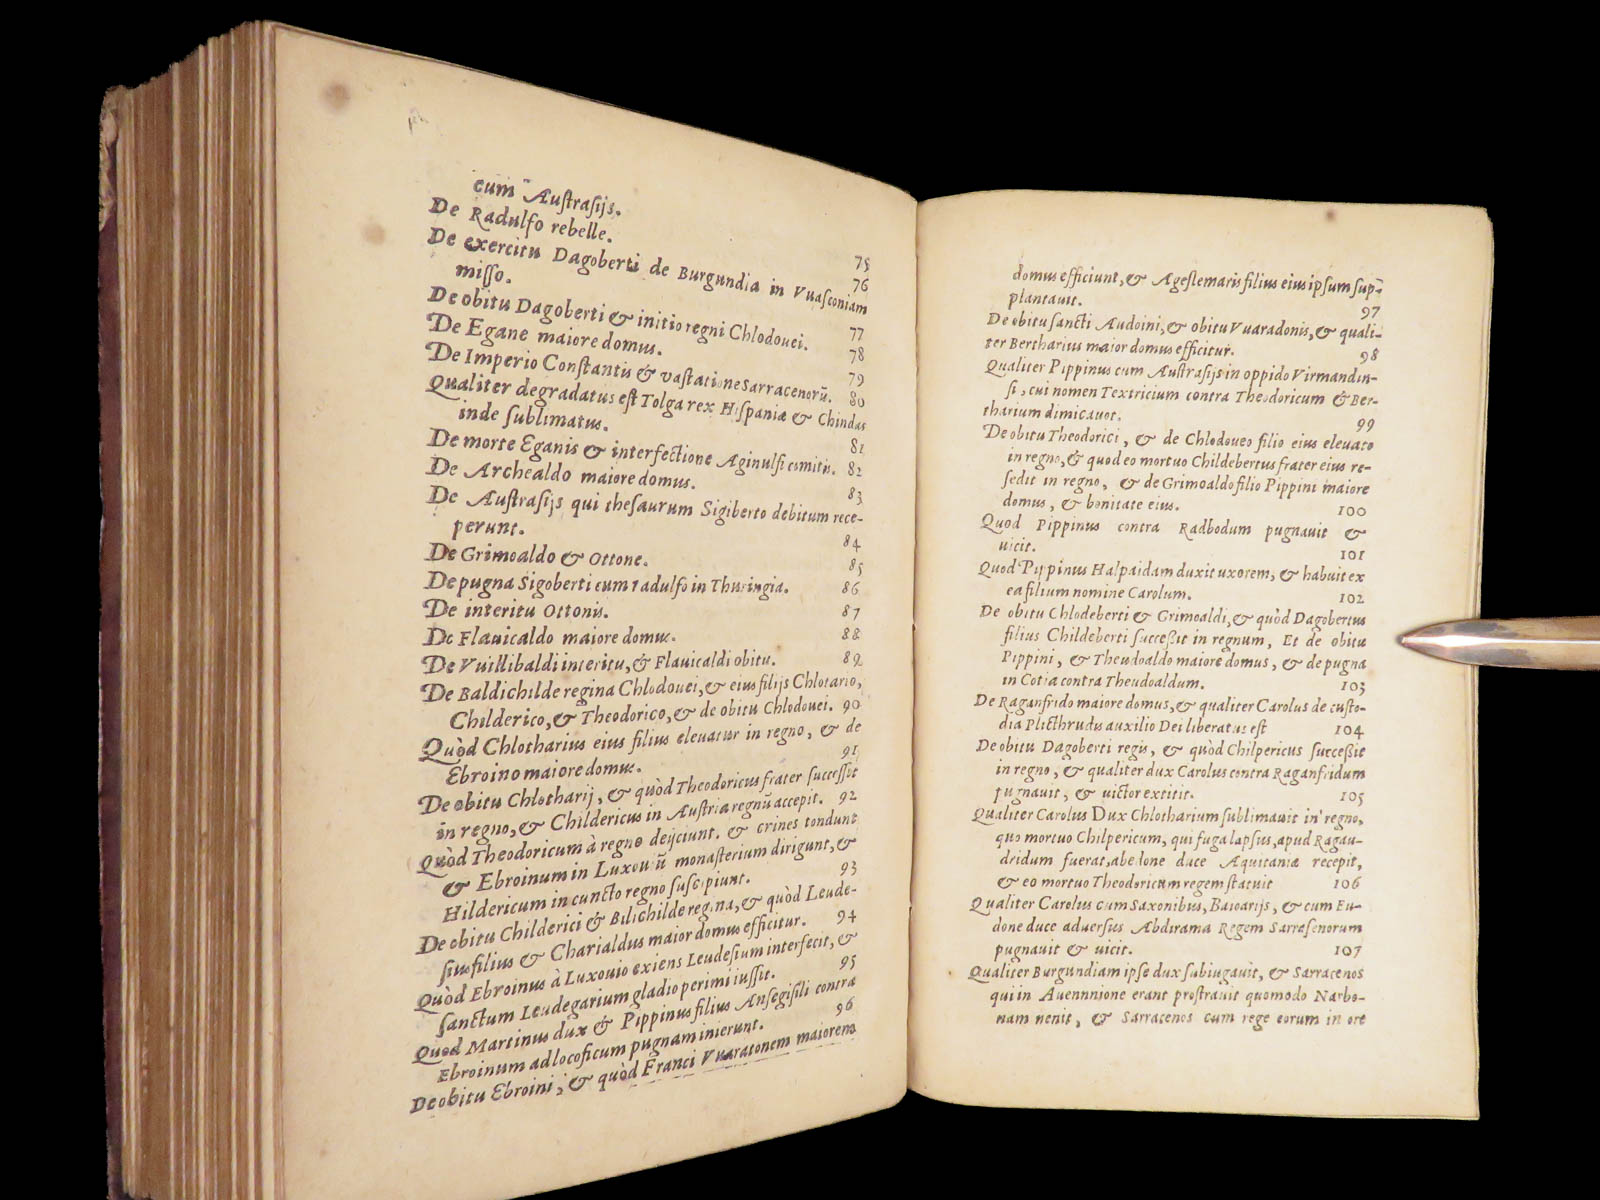 cum Æustrasijs.
De Radulfo rebelle. 75
De exercitu Dagoberti de Burgundia in Vuasconiam 76
misso.
De obitu Dagoberti & initio regni Chlodouei. 77
De Egane maiore domus. 78
De Imperio Constantis & vastatione Sarracenorū. 79
Qualiter degradatus est Tolga rex Hispaniæ & Chindas 80
inde sublimatus.
De morte Eganis & interfectione Æginulfi comitis. 81
De Archealdo maiore domus. 82
De Æustrasijs qui thesaurum Sigiberto debitum rece- 83
perunt.
De Grimoaldo & Ottone. 84
De pugna Sigoberti cum radulfo in Thuringia. 85
De interitu Ottonis. 86
De Flauicaldo maiore domus. 87
De Vuillibaldi interitu, & Flauicaldi obitu. 88
De Baldichilde regina Chlodouei, & eius filijs Chlotario, 89
Childerico, & Theodorico, & de obitu Chlodouei. 90
Quòd Chlotharius eius filius eleuatur in regno, & de
Ebroino maiore domus. 91
De obitu Chlotharij, & quòd Theodoricus frater successit
in regno, & Childericus in Austria regnū accepit. 92
Quòd Theodoricum à regno deijciunt. & crines tondunt
& Ebroinum in Luxouiū monasterium dirigunt, &
Hildericum in cuncto regno suscipiunt. 93
De obitu Childerici & Bilichilde regina, & quòd Leude-
sius filius & Charialdus maior domus efficitur. 94
Quòd Ebroinus à Luxouio exiens Leudesium interfecit, &
sanctum Leudegarium gladio perimi iussit. 95
Quod Martinus dux & Pippinus filius Ansegisili contra
Ebroinum ad locoficum pugnam inierunt. 96
De obitu Ebroini, & quòd Franci Vuaratonem maiorem
domus efficiunt, & Ægestemaris filius eius ipsum sup-
plantauit. 97
De obitu sancti Audoini, & obitu Vuaradonis, & quali-
ter Bertharius maior domus efficitur. 98
Qualiter Pippinus cum Æustrasijs in oppido Virmandin-
si, cui nomen Textricium contra Theodoricum & Ber-
tharium dimicauot. 99
De obitu Theodorici, & de Chlodoueo filio eius eleuato
in regno, & quod eo mortuo Childebertus frater eius re-
sedit in regno, & de Grimoaldo filio Pippini maiore
domus, & bonitate eius. 100
Quod Pippinus contra Radbodum pugnauit &
uicit. 101
Quod Pippinus Halpaidam duxit uxorem, & habuit ex
ea filium nomine Carolum. 102
De obitu Chlodeberti & Grimoaldi, & quòd Dagobertus
filius Childeberti successit in regnum, Et de obitu
Pippini, & Theudoaldo maiore domus, & de pugna
in Cotia contra Theudoaldum. 103
De Raganfrido maiore domus, & qualiter Carolus de custo-
dia Plicthrudis auxilio Dei liberatus est 104
De obitu Dagoberti regis, & quòd Chilpericus successit
in regno, & qualiter dux Carolus contra Raganfridum
pugnauit, & uictor extitit. 105
Qualiter Carolus Dux Chlotharium sublimauit in regno,
quo mortuo Chilpericum, qui fuga lapsus, apud Ragan-
dridum fuerat, ab edone duce Æquitaniæ recepit,
& eo mortuo Theodoricum regem statuit 106
Qualiter Carolus cum Saxonibus, Baioarijs, & cum Eu-
done duce aduersus Abdirama Regem Sarrasenorum
pugnauit & uicit. 107
Qualiter Burgundiam ipse dux subiugauit, & Sarracenos
qui in Auennnione erant prostrauit quomodo Narbo-
nam uenit, & Sarracenos cum rege eorum in ore